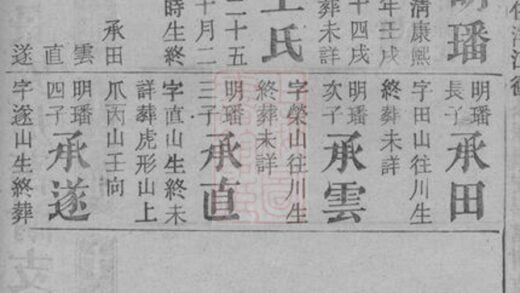 明璠
清康熙
年壬戌
十四戌
葬未詳
王氏
二十五
十月二
時生終
承田
雲
直
遂
明璠
長子
承田
字田山往川生
終葬未詳
明璠
次子
承雲
字榮山往川生
終葬未詳
明璠
三子
承直
字直山生終未
詳葬虎形山上
爪丙山壬向
明璠
四子
承遂
字遂山生終葬